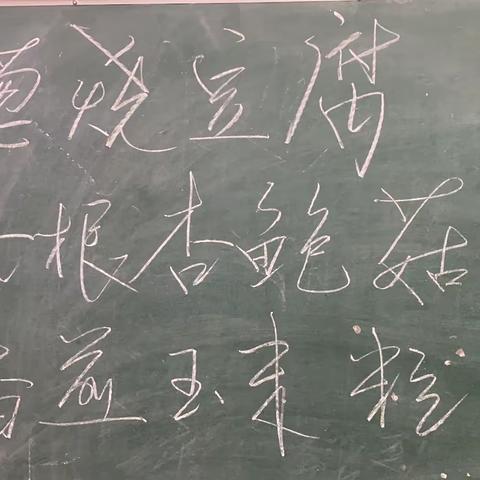 葱烧豆腐
根杏鲍菇
香煎玉米粒